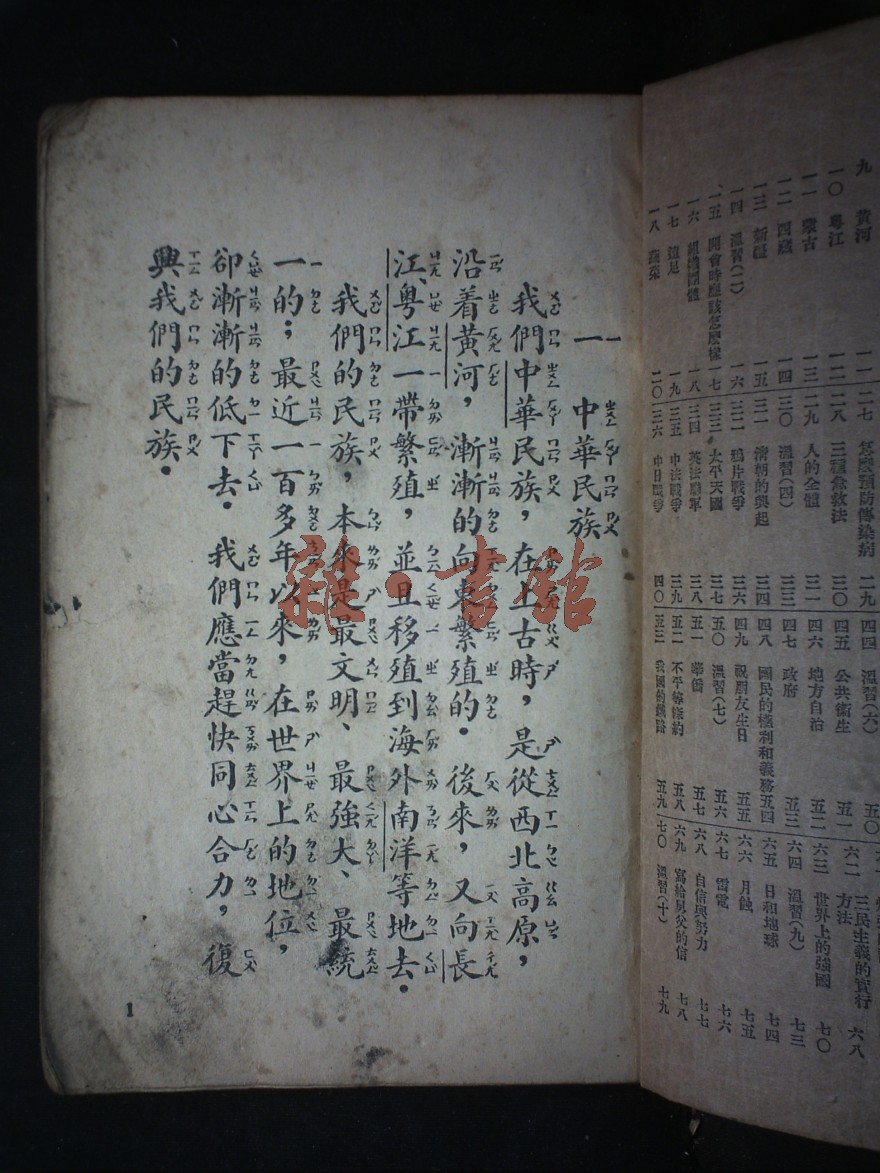 九 黃河 一一
一〇 粵江 一二
一一 蒙古 一三
一二 西藏 一四
一三 新疆 一五
一四 溫習(二) 一六
一五 開會時應該怎麼樣 一七
一六 組織團體 一八
一七 遠足 一九
一八 蔬菜 二〇
二七 怎麼預防傳染病 二九
二八 三種急救法 三〇
二九 人的全體 三一
三〇 溫習(四) 三三
三一 清朝的興起 三四
三二 鴉片戰爭 三六
三三 太平天國 三七
三四 英法聯軍 三八
三五 中法戰爭 三九
三六 中日戰爭 四〇
四四 溫習(六) 五〇
四五 公共衞生 五一
四六 地方自治 五二
四七 政府 五三
四八 國民的權利和義務 五四
四九 祝朋友生日 五五
五〇 溫習(七) 五六
五一 華僑 五七
五二 不平等條約 五八
五三 我國的鐵路 五九
六二 三民主義的實行
方法 六八
六三 世界上的強國 七〇
六四 溫習(九) 七三
六五 日和地球 七四
六六 月蝕 七五
六七 雷電 七六
六八 自信與努力 七七
六九 寫給舅父的信 七八
七〇 溫習(十) 七九
一 中華民族
我們中華民族，在上古時，是從西北高原，
沿着黃河，漸漸的向東繁殖的。後來，又向長
江、粵江一帶繁殖，並且移殖到海外南洋等地去。
我們的民族，本來是最文明、最強大、最統
一的；最近一百多年以來，在世界上的地位，
卻漸漸的低下去。我們應當趕快同心合力，復
興我們的民族。
1
雜·書館